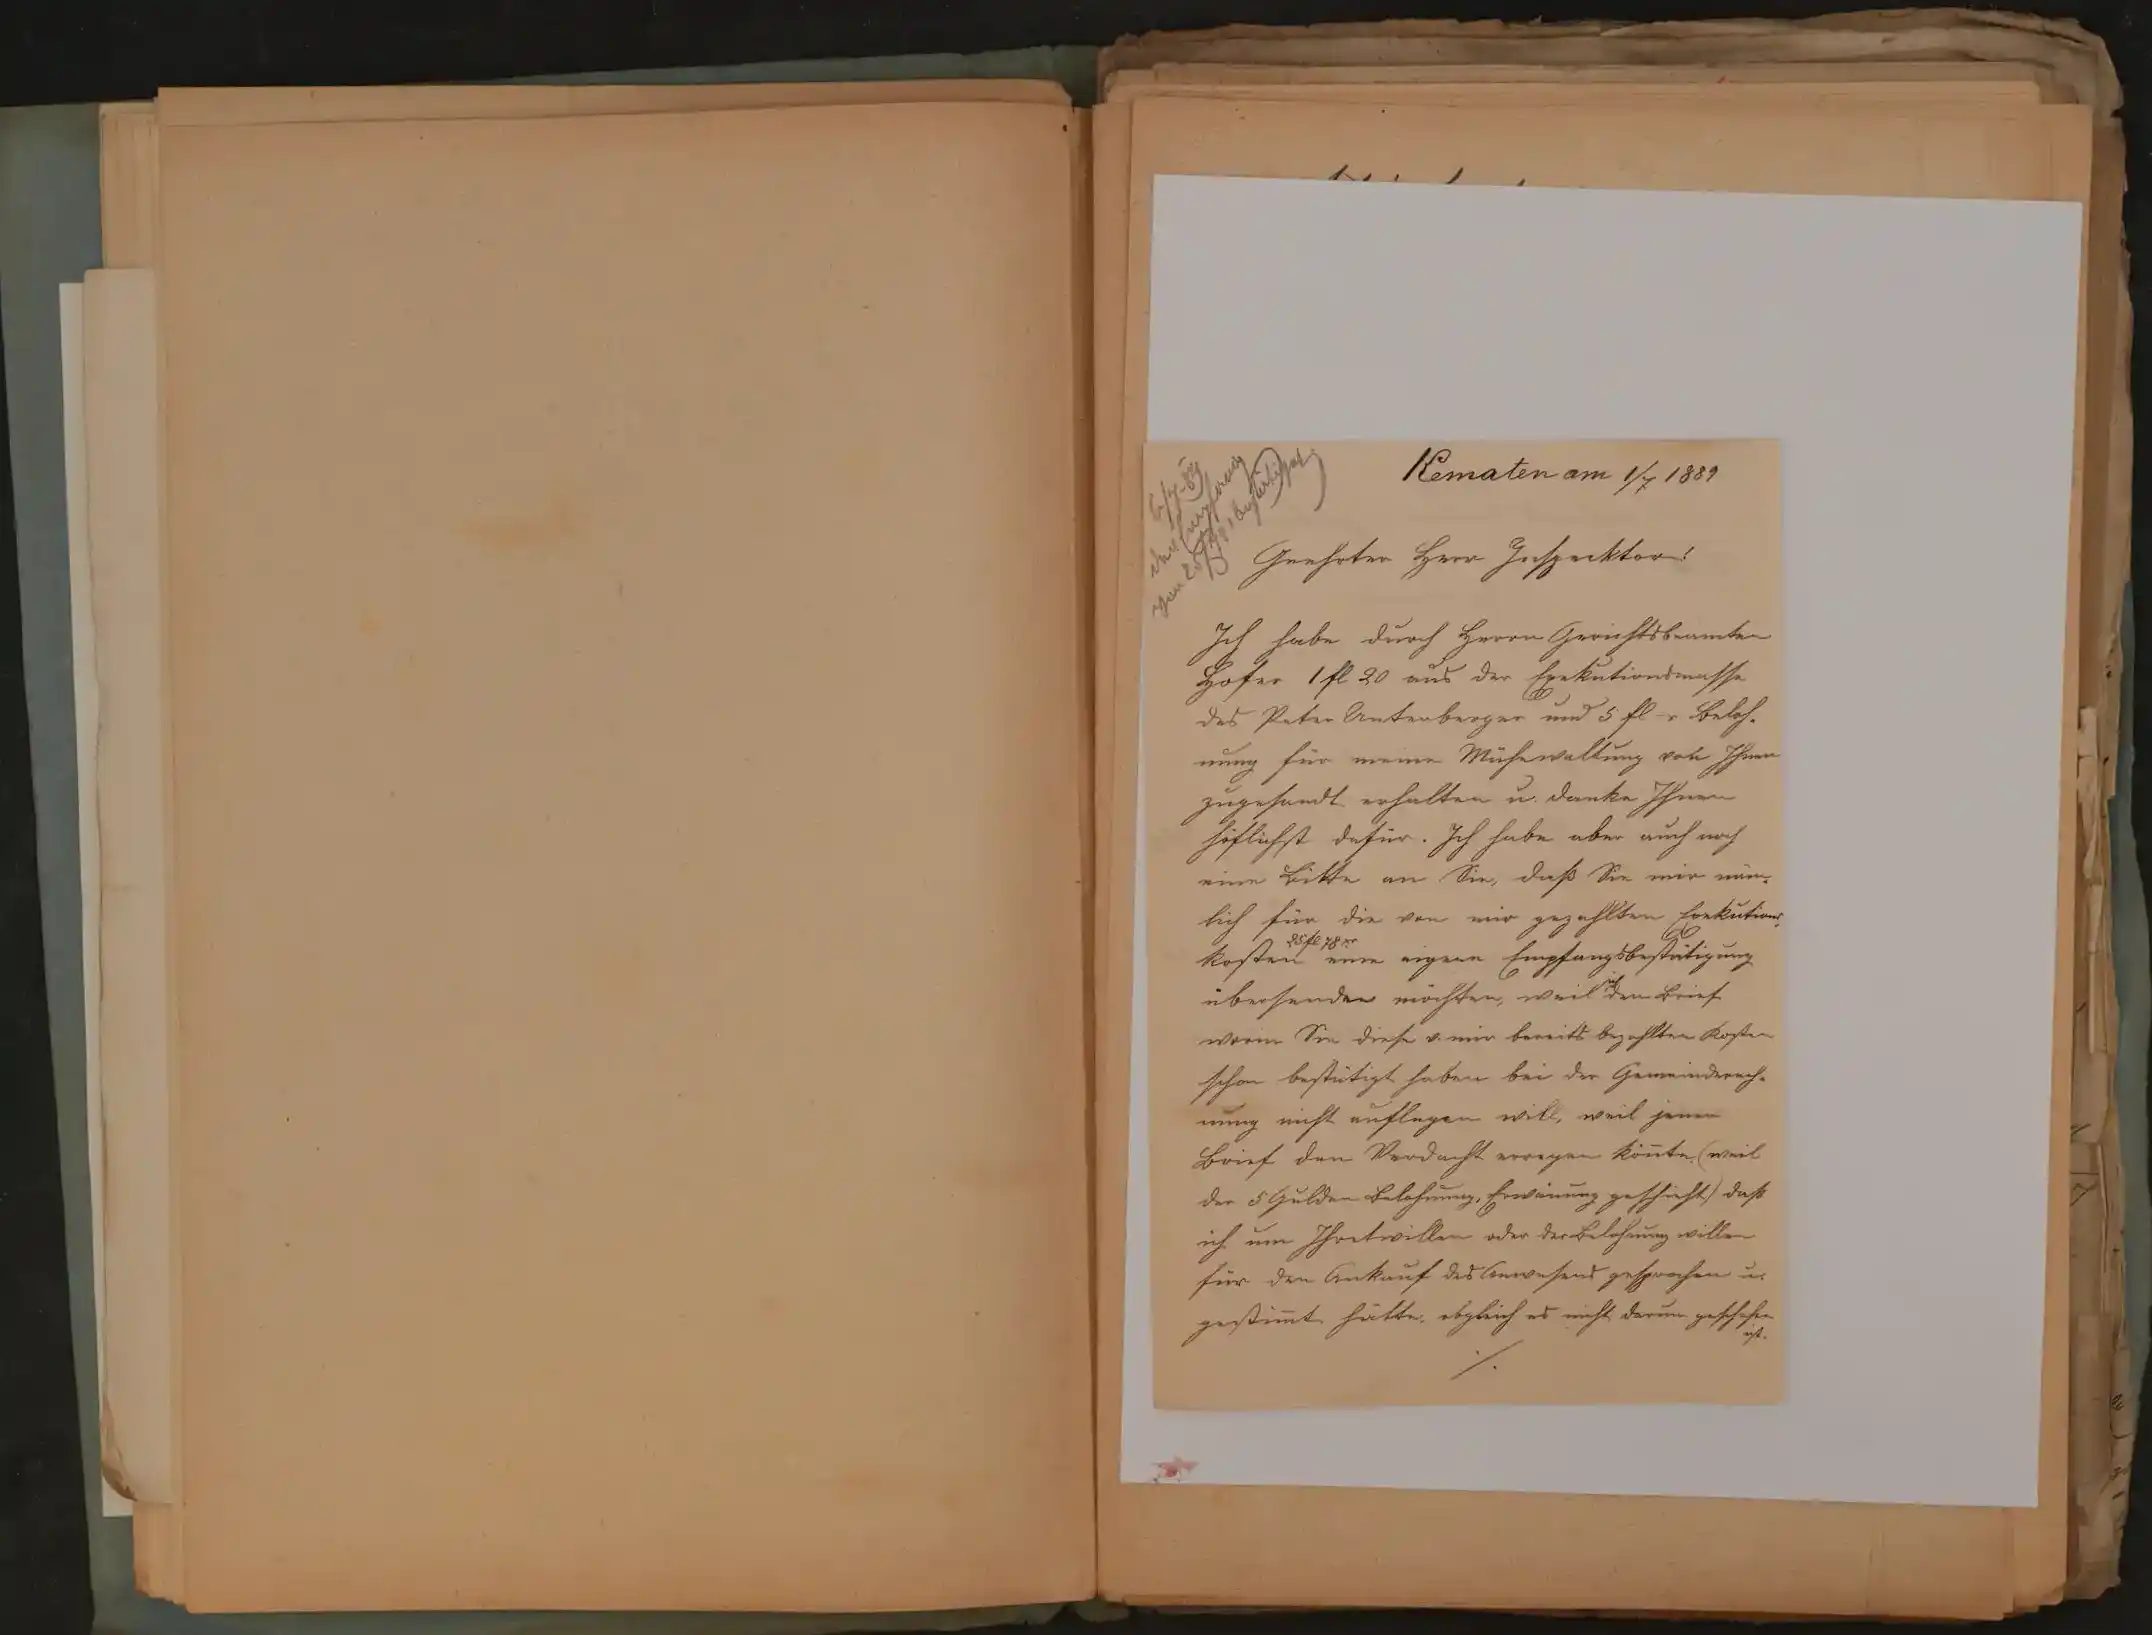 Kematen am 1/7 1889
6/7 89
Geehrter Herr Inspecktor!
Ich habe durch Herrn Gerichtsbeamten
Hofer 1 fl 20 aus der Exekutionsmasse
des Peter Unterberger und 5 fl Beloh-
nung für meine Mühewaltung von Ihnen
zugesandt erhalten u. danke Ihnen
höflichst dafür. Ich habe aber auch noch
eine Bitte an Sie, daß Sie mir näm-
lich für die von mir gezahlten Exekutions-
kosten 25 fl 78 xr eine eigene Empfangsbestätigung
übersenden möchten, weil ich den Brief
worin Sie diese v. mir bereits bezahlten Kosten
schon bestätigt haben bei der Gemeinderech-
nung nicht auflegen will, weil jener
Brief den Verdacht erregen könnte (weil
der 5 Gulden Belohnung, Erwänung geschieht) daß
ich um Ihretwillen oder der Belohnung willen
für den Ankauf des Anwesens gesprochen u.
gestimmt hätte, obgleich es nicht darum geschehen
ist.
./.